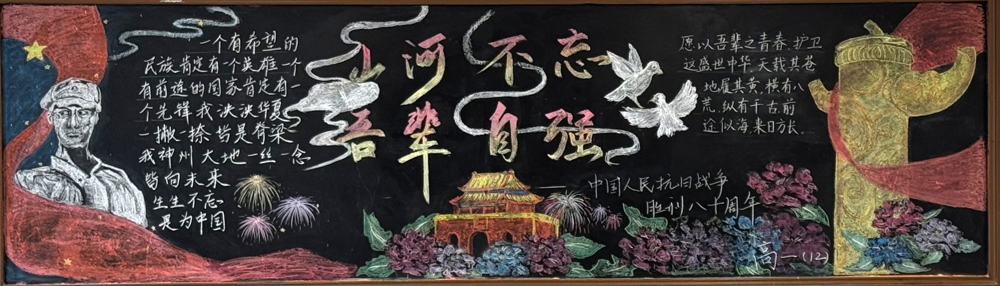 一个有希望的
民族肯定有一个英雄一个
有前途的国家肯定有一
个先锋我泱泱华夏
一撇一捺皆是脊梁
我神州大地一丝一念
皆向未来
生生不忘
是为中国
山河不忘
吾辈自强
愿以吾辈之青春,护卫
这盛世中华,天戴其苍
地履其黄,横有八
荒,纵有千古,前
途似海,来日方长.
——中国人民抗日战争
胜利八十周年
高一(12)